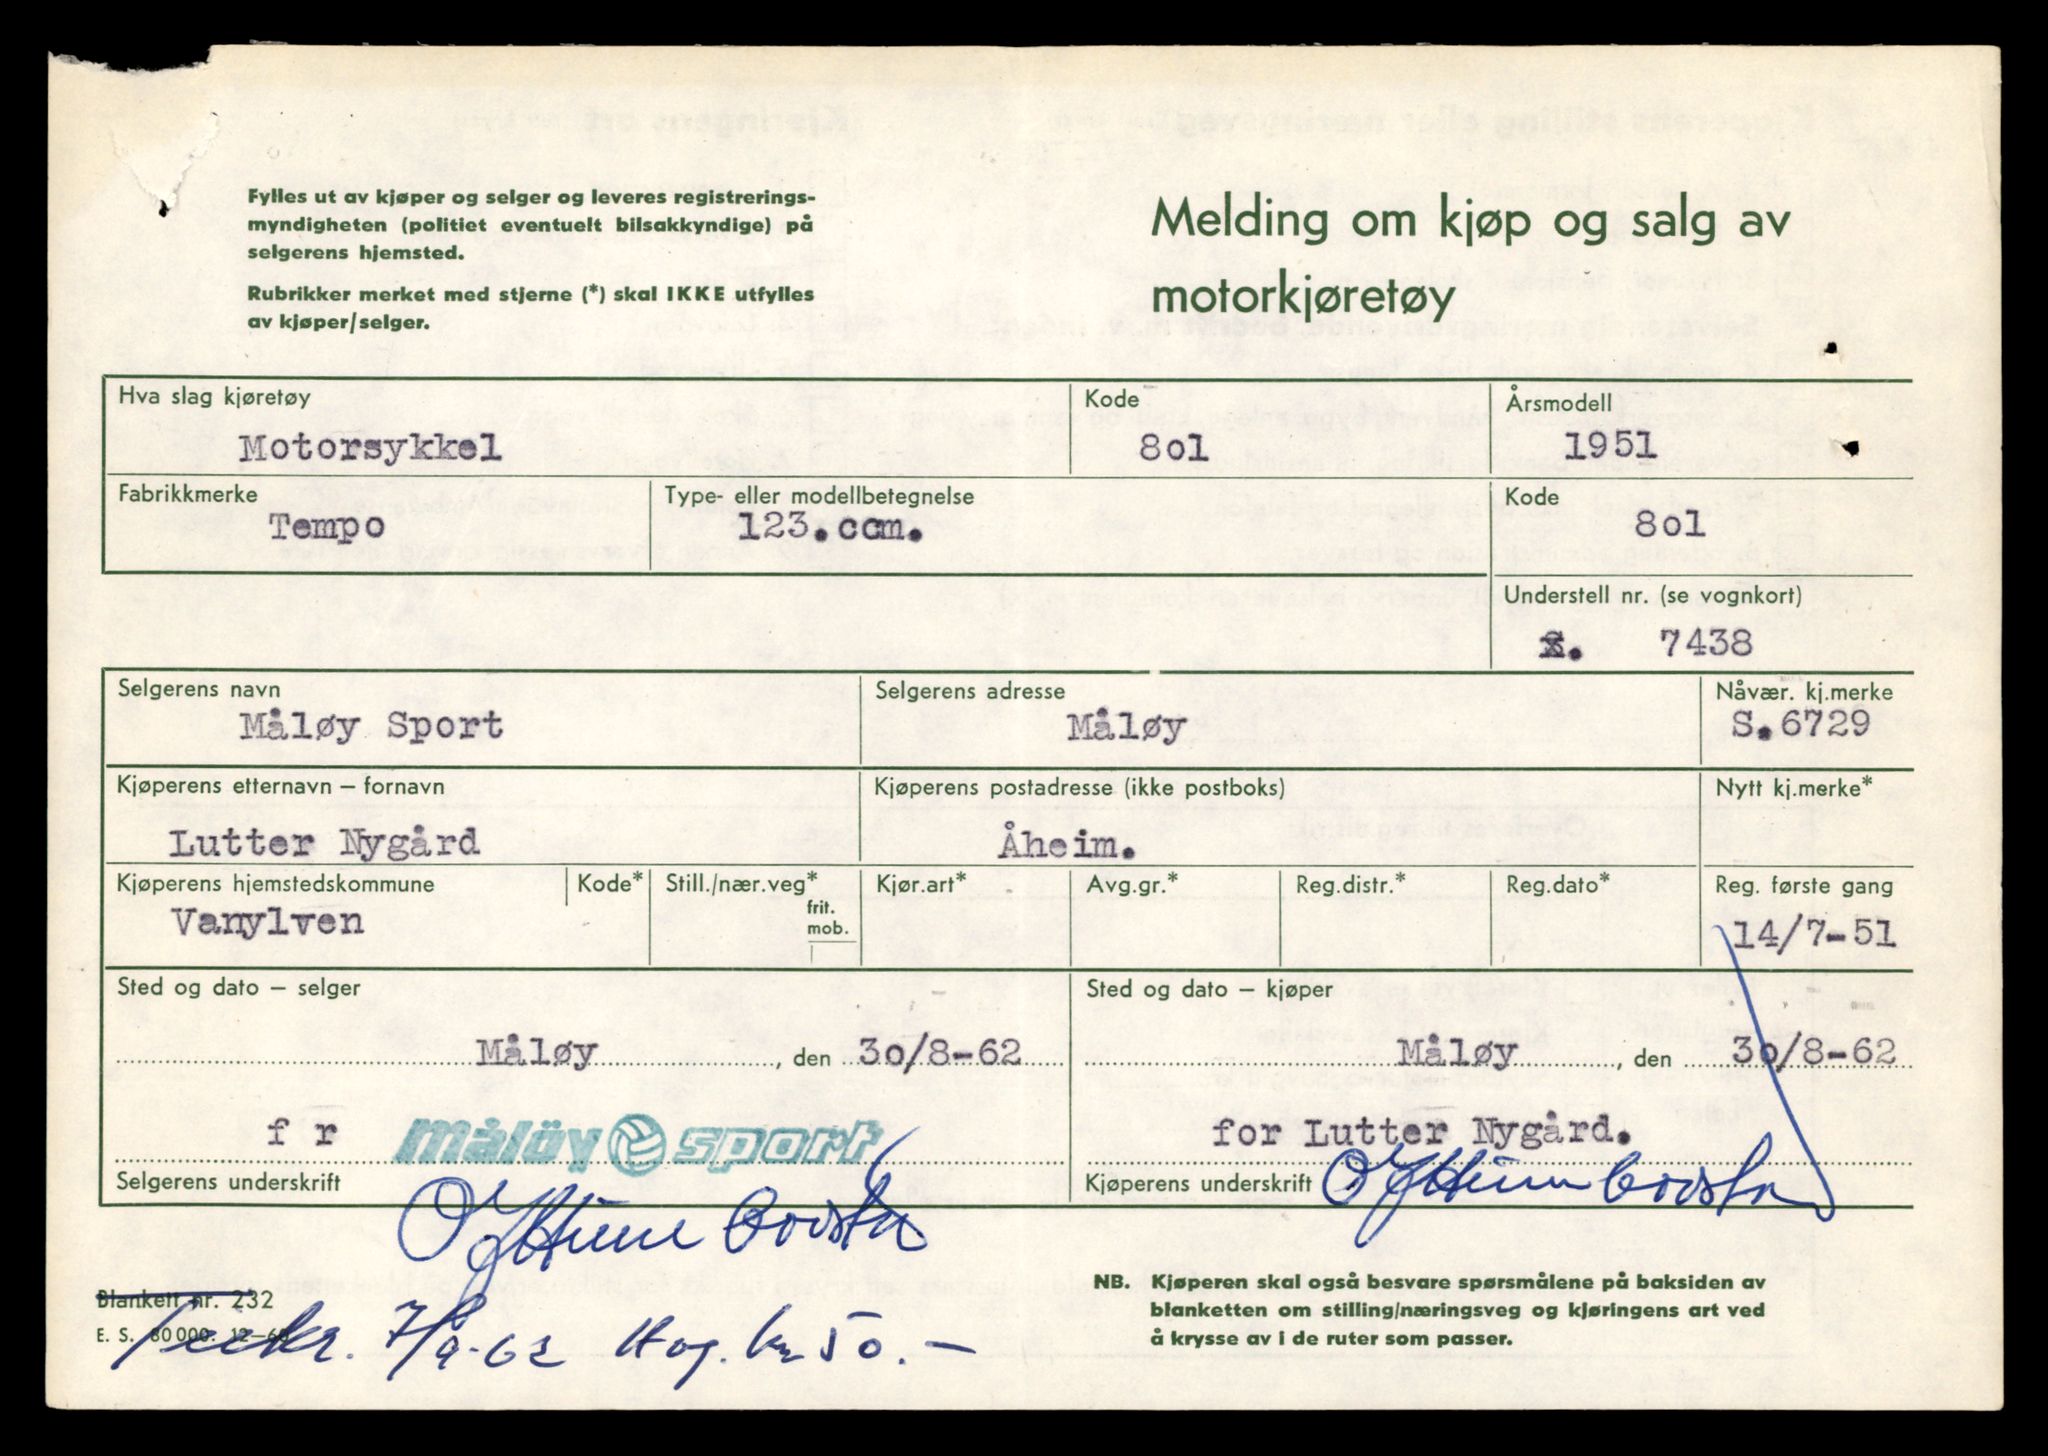 Fylles ut av kjøper og selger og leveres registrerings-
myndigheten (politiet eventuelt bilsakkyndige) på
selgerens hjemsted.
Rubrikker merket med stjerne (*) skal IKKE utfylles
av kjøper/selger.
Melding om kjøp og salg av
motorkjøretøy
Hva slag kjøretøy Kode Årsmodell
Motorsykkel 8o1 1951
Fabrikkmerke Type- eller modellbetegnelse Kode
Tempo 123.ccm. 8o1
Understell nr. (se vognkort)
7438
Selgerens navn Selgerens adresse Nåvær. kj.merke
Måløy Sport Måløy S.6729
Kjøperens etternavn – fornavn Kjøperens postadresse (ikke postboks) Nytt kj.merke*
Lutter Nygård Åheim.
Kjøperens hjemstedskommune Kode* Still./nær.veg* Kjør.art* Avg.gr.* Reg.distr.* Reg.dato* Reg. første gang
frit.
mob.
Vanylven 14/7-51
Sted og dato – selger Sted og dato – kjøper
Måløy, den 3o/8-62 Måløy, den 3o/8-62
f r måløy sport for Lutter Nygård.
Selgerens underskrift Kjøperens underskrift
Blankett nr. 232
E. S. 80000. 12–60
7/9-62 kr 50.–
NB. Kjøperen skal også besvare spørsmålene på baksiden av
blanketten om stilling/næringsveg og kjøringens art ved
å krysse av i de ruter som passer.